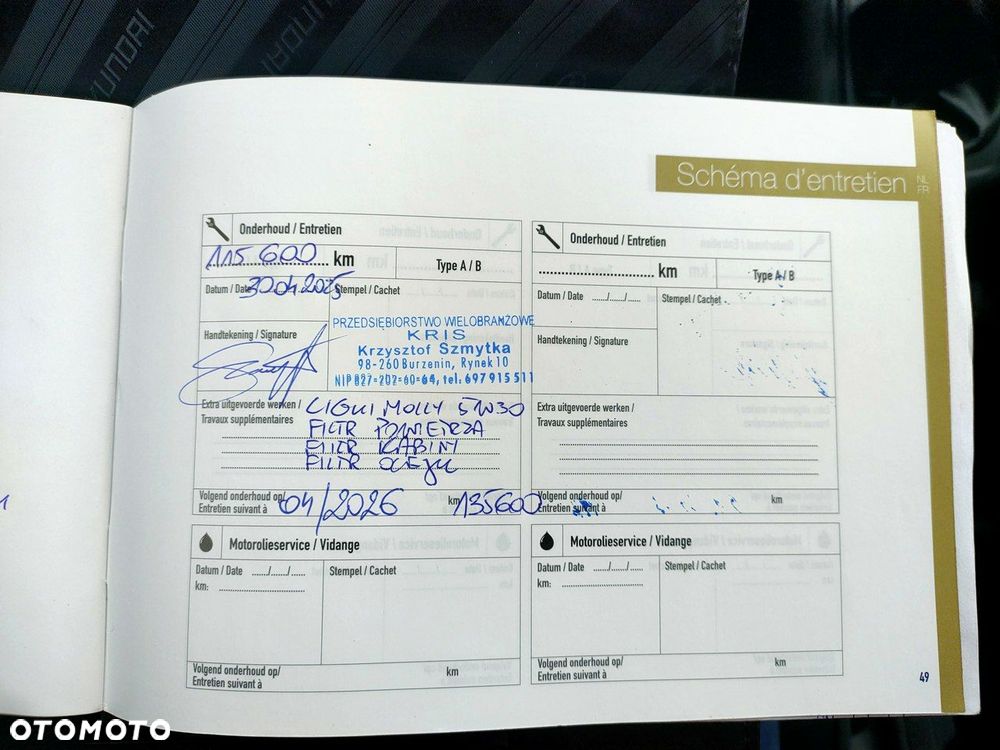 HYUNDAI
Schéma d'entretien
NL
FR
Onderhoud / Entretien
115 600 km
Type A / B
Datum / Date 30.04.2025
Stempel / Cachet
Handtekening / Signature
PRZEDSIĘBIORSTWO WIELOBRANŻOWE
KRIS
Krzysztof Szmytka
98-260 Burzenin, Rynek 10
NIP 827-202-60-64, tel: 697 915 511
Extra uitgevoerde werken /
Travaux supplémentaires
LIQUI MOLLY 5W30
FILTR POWIETRZA
FILTR KABINY
FILTR OLEJU
Volgend onderhoud op/
Entretien suivant à
04/2026
km 135600
Onderhoud / Entretien
km
Type A / B
Datum / Date ...../...../.....
Stempel / Cachet
Handtekening / Signature
Extra uitgevoerde werken /
Travaux supplémentaires
Volgend onderhoud op/
Entretien suivant à
km
Motorolieservice / Vidange
Datum / Date ...../...../.....
km:
Stempel / Cachet
Volgend onderhoud op/
Entretien suivant à
km
Motorolieservice / Vidange
Datum / Date ...../...../.....
km:
Stempel / Cachet
Volgend onderhoud op/
Entretien suivant à
km
49
OTOMOTO